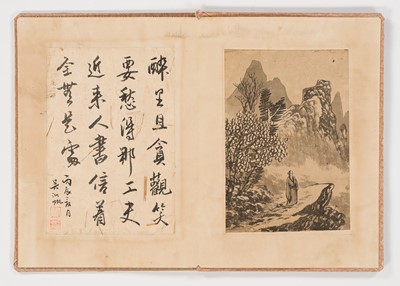 醉里且貪觀笑
要愁得那工夫
近来人書信着
全無是處
丙辰月
吳